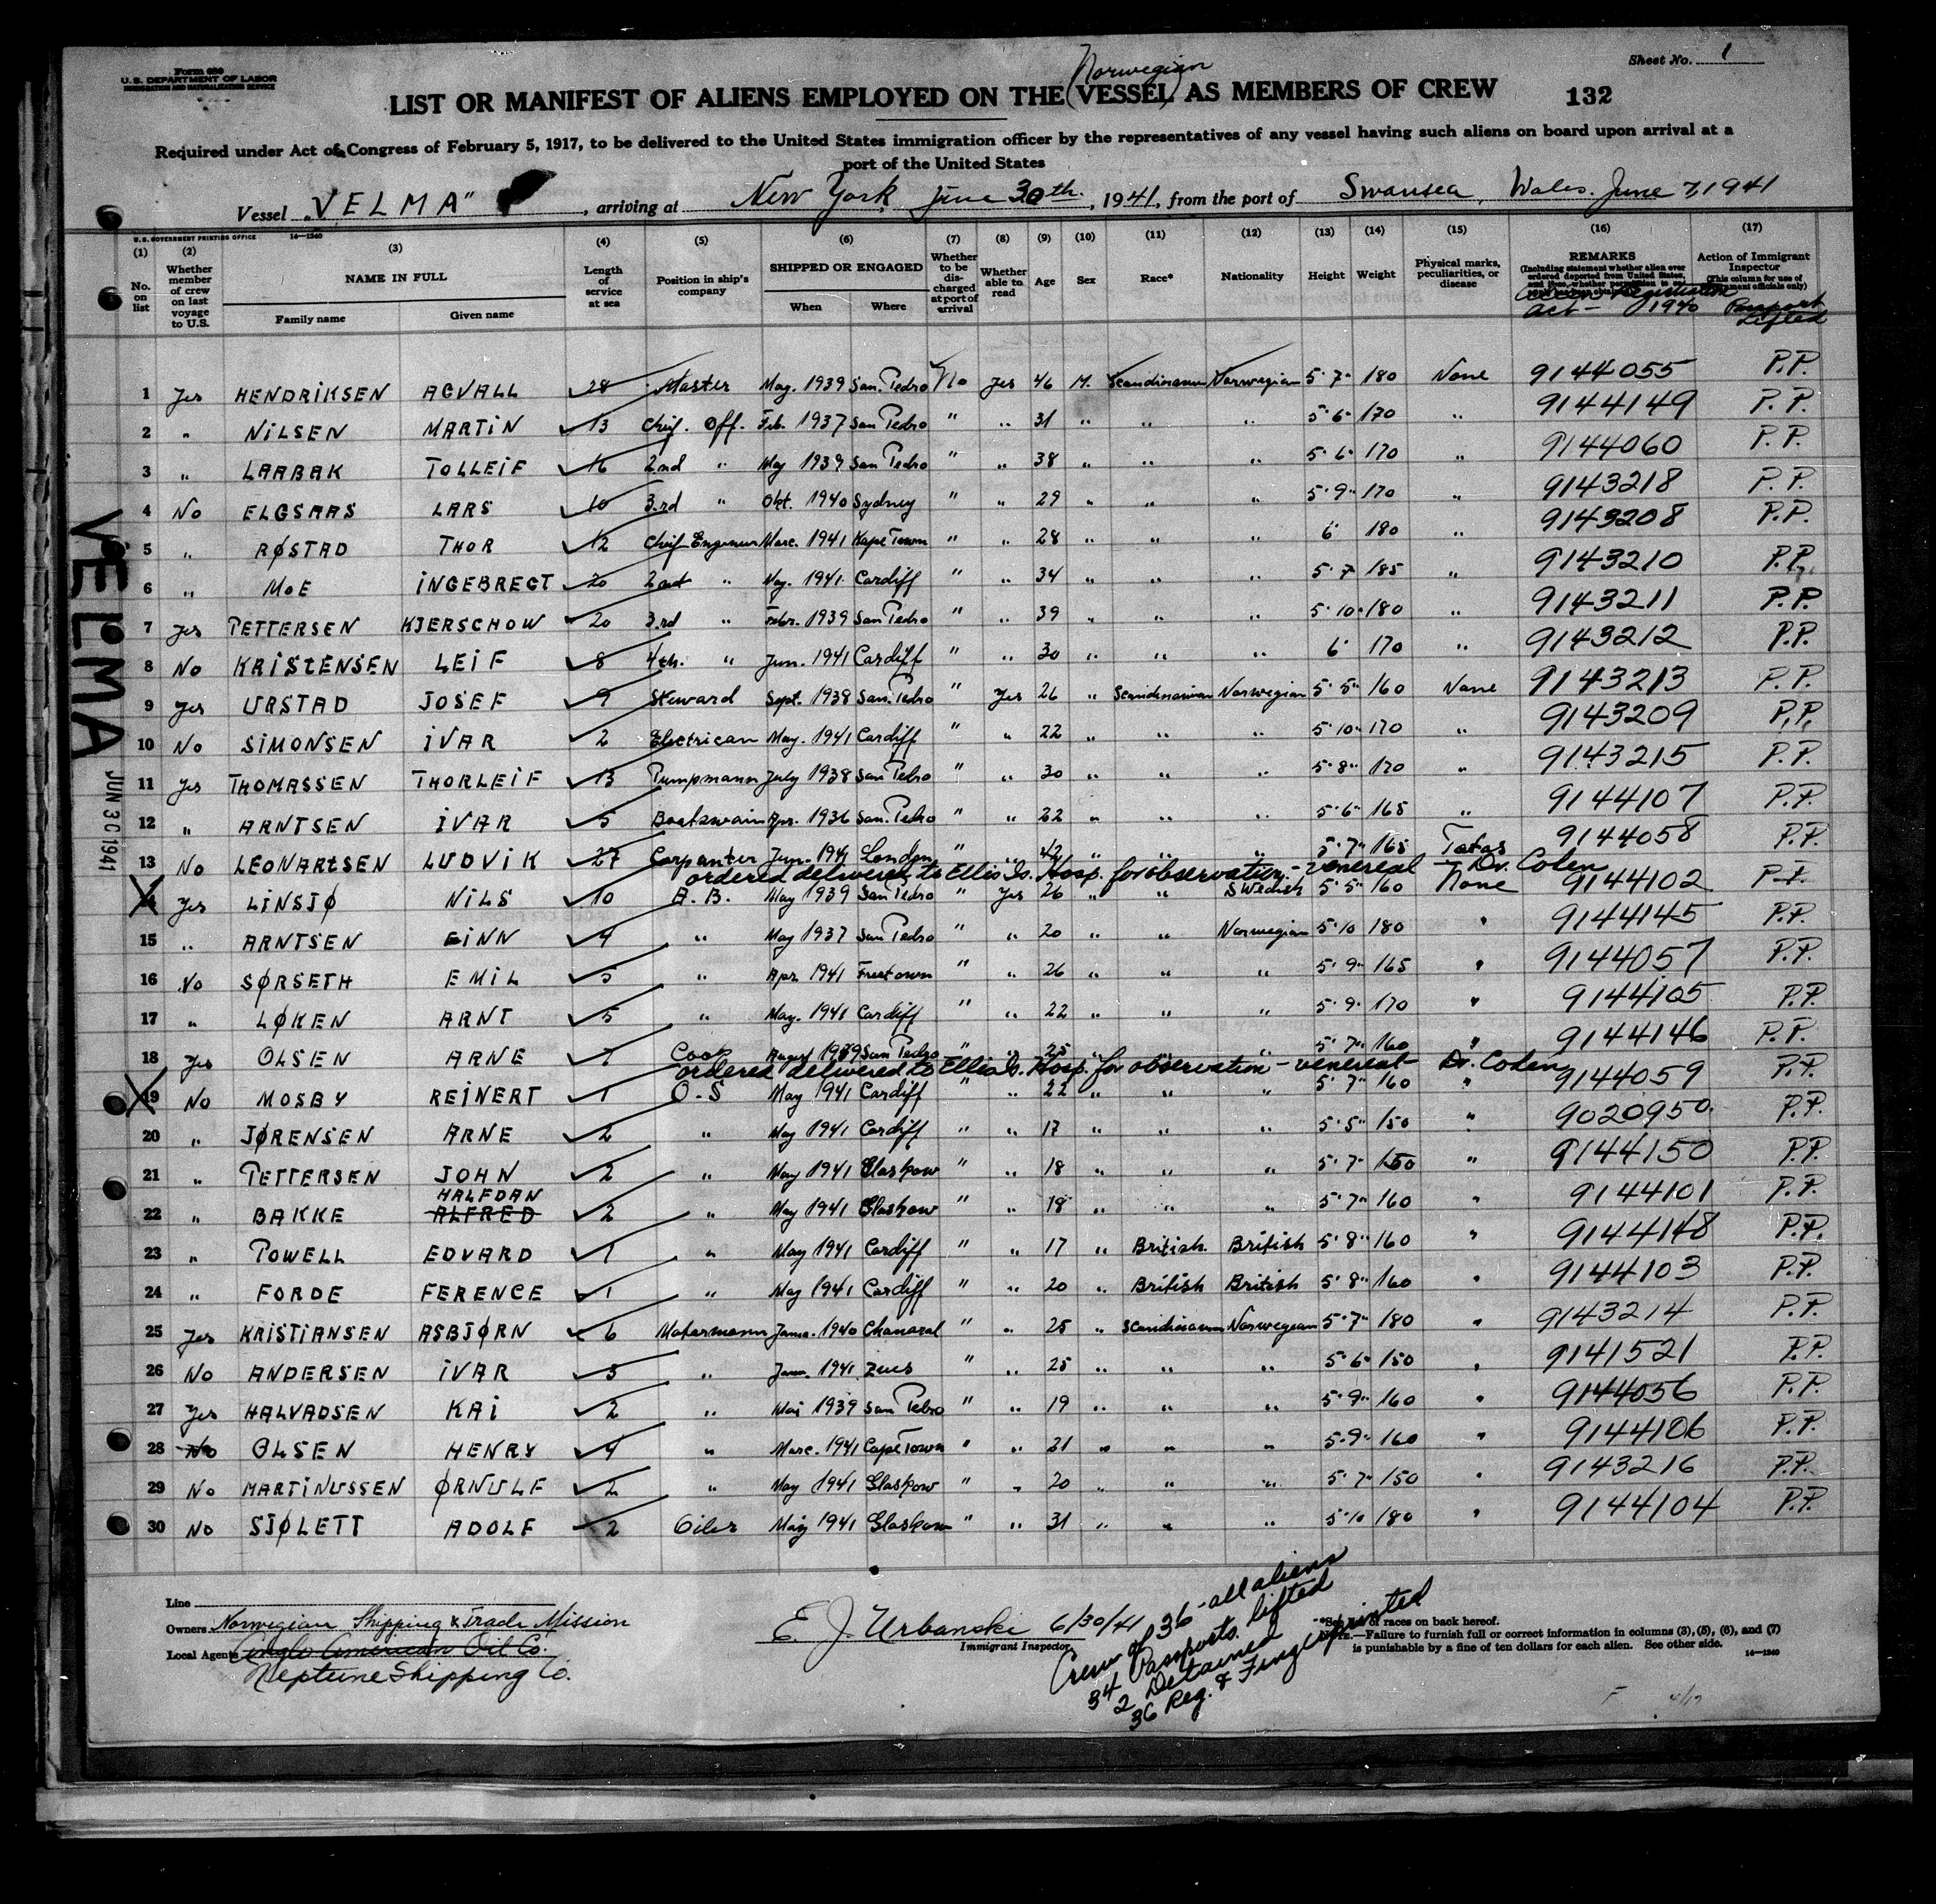 Form 680
U.S. DEPARTMENT OF LABOR
IMMIGRATION AND NATURALIZATION SERVICE
Sheet No. 1
Norwegian
LIST OR MANIFEST OF ALIENS EMPLOYED ON THE (VESSEL) AS MEMBERS OF CREW 132
Required under Act of Congress of February 5, 1917, to be delivered to the United States immigration officer by the representatives of any vessel having such aliens on board upon arrival at a
port of the United States
Vessel "VELMA", arriving at New York, June 30th, 1941, from the port of Swansea, Wales. June 7, 1941
U.S. GOVERNMENT PRINTING OFFICE 14—1240
(1) (2) (3) (4) (5) (6) (7) (8) (9) (10) (11) (12) (13) (14) (15) (16) (17)
No. on list
Whether member of crew on last voyage to U.S.
NAME IN FULL
Family name Given name
Length of service at sea
Position in ship's company
SHIPPED OR ENGAGED
When Where
Whether to be discharged at port of arrival
Whether able to read
Age
Sex
Race*
Nationality
Height
Weight
Physical marks, peculiarities, or disease
REMARKS
(Including statement whether alien ever ordered deported from United States,
Registration
Act - 1940
Action of Immigrant Inspector
(This column for use of Government officials only)
Passport
Lifted
1 Yes HENDRIKSEN AGVALL 28 Master May. 1939 San. Pedro No yes 46 M. Scandinavian Norwegian 5' 7" 180 None 9144055 P.P.
2 " NILSEN MARTIN 13 Chif. Off. Feb. 1937 San Pedro " " 31 " " " 5' 6" 170 " 9144149 P.P.
3 " LAABAK TOLLEIF 16 2nd " May 1939 San Pedro " " 38 " " " 5' 6" 170 " 9144060 P.P.
4 No ELGSAAS LARS 10 3.rd " Okt. 1940 Sydney " " 29 " " " 5' 9" 170 " 9143218 P.P.
5 " RØSTAD THOR 12 Chif Engineur Marc. 1941 Kape Town " " 28 " " " 6' 180 " 9143208 P.P.
6 " MOE INGEBRECT 20 " 1941 Cardiff " " 34 " " " 5' 7 185 " 9143210 P.P.
7 yes PETTERSEN KJERSCHOW 20 3.rd " Febr. 1939 San Pedro " " 39 " " " 5' 10" 180 " 9143211 P.P.
8 No KRISTENSEN LEIF 8 4th. " Jun. 1941 Cardiff " " 30 " " " 6' 170 " 9143212 P.P.
9 yes URSTAD JOSEF 9 Steward Sept. 1938 San. Pedro " Yes 26 " Scandinavian Norwegian 5' 5" 160 None 9143213 P.P.
10 No SIMONSEN IVAR 2 Electrican May. 1941 Cardiff " " 22 " " " 5' 10" 170 " 9143209 P.P.
11 yes THOMASSEN THORLEIF 13 Pumpmann July 1938 San Pedro " " 30 " " " 5' 8" 170 " 9143215 P.P.
12 " ARNTSEN IVAR 5 Boatswain Apr. 1936 San. Pedro " " 22 " " " 5' 6" 165 " 9144107 P.P.
13 No LEONARTSEN LUDVIK 27 Carpanter Jun. 1941 London " " 42 " " " 5' 7" 165 Tatos 9144058 P.P.
ordered delivered to Ellis Is. Hosp. for observation - venereal - Dr. Coten
14 Yes LINSJØ NILS 10 A. B. May 1939 San Pedro " Yes 26 " " Swedish 5' 5" 160 None 9144102 P.P.
15 " ARNTSEN FINN 4 " May 1937 San Pedro " " 20 " " Norwegian 5' 10 180 " 9144145 P.P.
16 No SØRSETH EMIL 5 " Apr. 1941 Freetown " " 26 " " " 5' 9" 165 " 9144057 P.P.
17 " LØKEN ARNT 5 " May. 1941 Cardiff " " 22 " " " 5' 9" 170 " 9144105 P.P.
18 Yes OLSEN ARNE 7 Cook August 1939 San Pedro " " 25 " " " 5' 7" 160 " 9144146 P.P.
ordered delivered to Ellis Is. Hosp. for observation - venereal - Dr. Coten
19 No MOSBY REINERT 1 O-S May 1941 Cardiff " " 22 " " " 5' 7" 160 " 9144059 P.P.
20 " JØRENSEN ARNE 2 " May 1941 Cardiff " " 17 " " " 5' 5" 150 " 9020950 P.P.
21 " PETTERSEN JOHN 2 " May 1941 Glaskow " " 18 " " " 5' 7" 150 " 9144150 P.P.
HALFDAN
22 " BAKKE ALFRED 2 " May 1941 Glaskow " " 18 " " " 5' 7" 160 " 9144101 P.P.
23 " POWELL EDVARD 1 " May 1941 Cardiff " " 17 " British. British 5' 8" 160 " 9144148 P.P.
24 " FORDE FERENCE 1 " May 1941 Cardiff " " 20 " British British 5' 8" 160 " 9144103 P.P.
25 Yes KRISTIANSEN ASBJØRN 6 Motormann Janu. 1940 Chanaral " " 25 " Scandinavian Norwegian 5' 7" 180 " 9143214 P.P.
26 No ANDERSEN IVAR 3 " Janu. 1941 " " 25 " " " 5' 6" 150 " 9141521 P.P.
27 Yes HALVADSEN KAI 2 " Mai 1939 San Pedro " " 19 " " " 5' 9" 160 " 9144056 P.P.
28 No OLSEN HENRY 4 " Marc. 1941 Cape Town " " 21 " " " 5' 9" 160 " 9144106 P.P.
29 No MARTINUSSEN ØRNULF 2 " May 1941 Glaskow " " 20 " " " 5' 7" 150 " 9143216 P.P.
30 No SJØLETT ADOLF 2 Oiler May 1941 Glaskow " " 31 " " " 5' 10 180 " 9144104 P.P.
VELMA
JUN 30 1941
Line
Owners Norwegian Shipping & Trade Mission
Local Agents Anglo American Oil Co.
Neptune Shipping Co.
E. J. Urbanski 6/30/41
Immigrant Inspector
Crew of 36 - all aliens
34 Passports lifted
2 Detained
36 Reg. & Fingerprinted
*See list of races on back hereof.
NOTE.—Failure to furnish full or correct information in columns (3), (5), (6), and (7)
is punishable by a fine of ten dollars for each alien. See other side.
14—1240
F 4/17